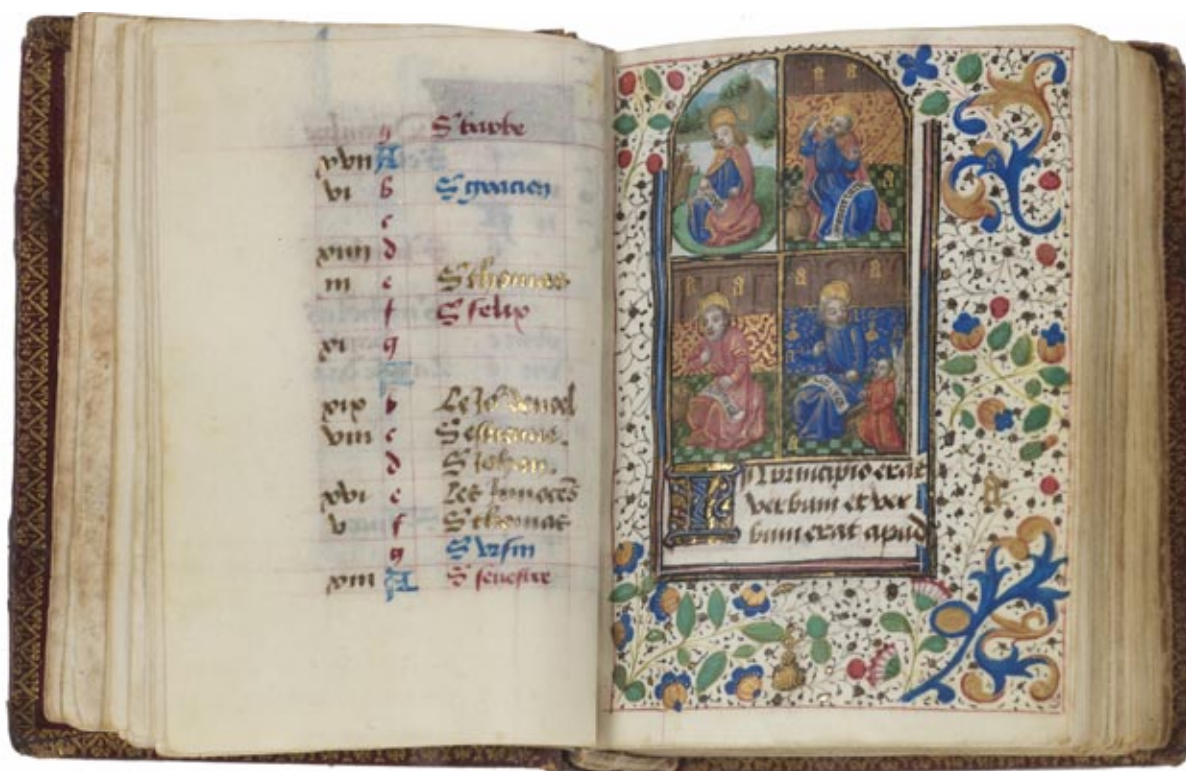 g S
xvii A
vi b S gracien
c
xiiii d
iii e S thomas
f S felix
xi g
A
xix b Le Jo de noel
viii c S estienne.
d S Jehan.
xvi e Les Innocēs
v f S thomas
g S Ursin
xiii A S seuestre
In principio erat
verbum et ver
bum erat apud